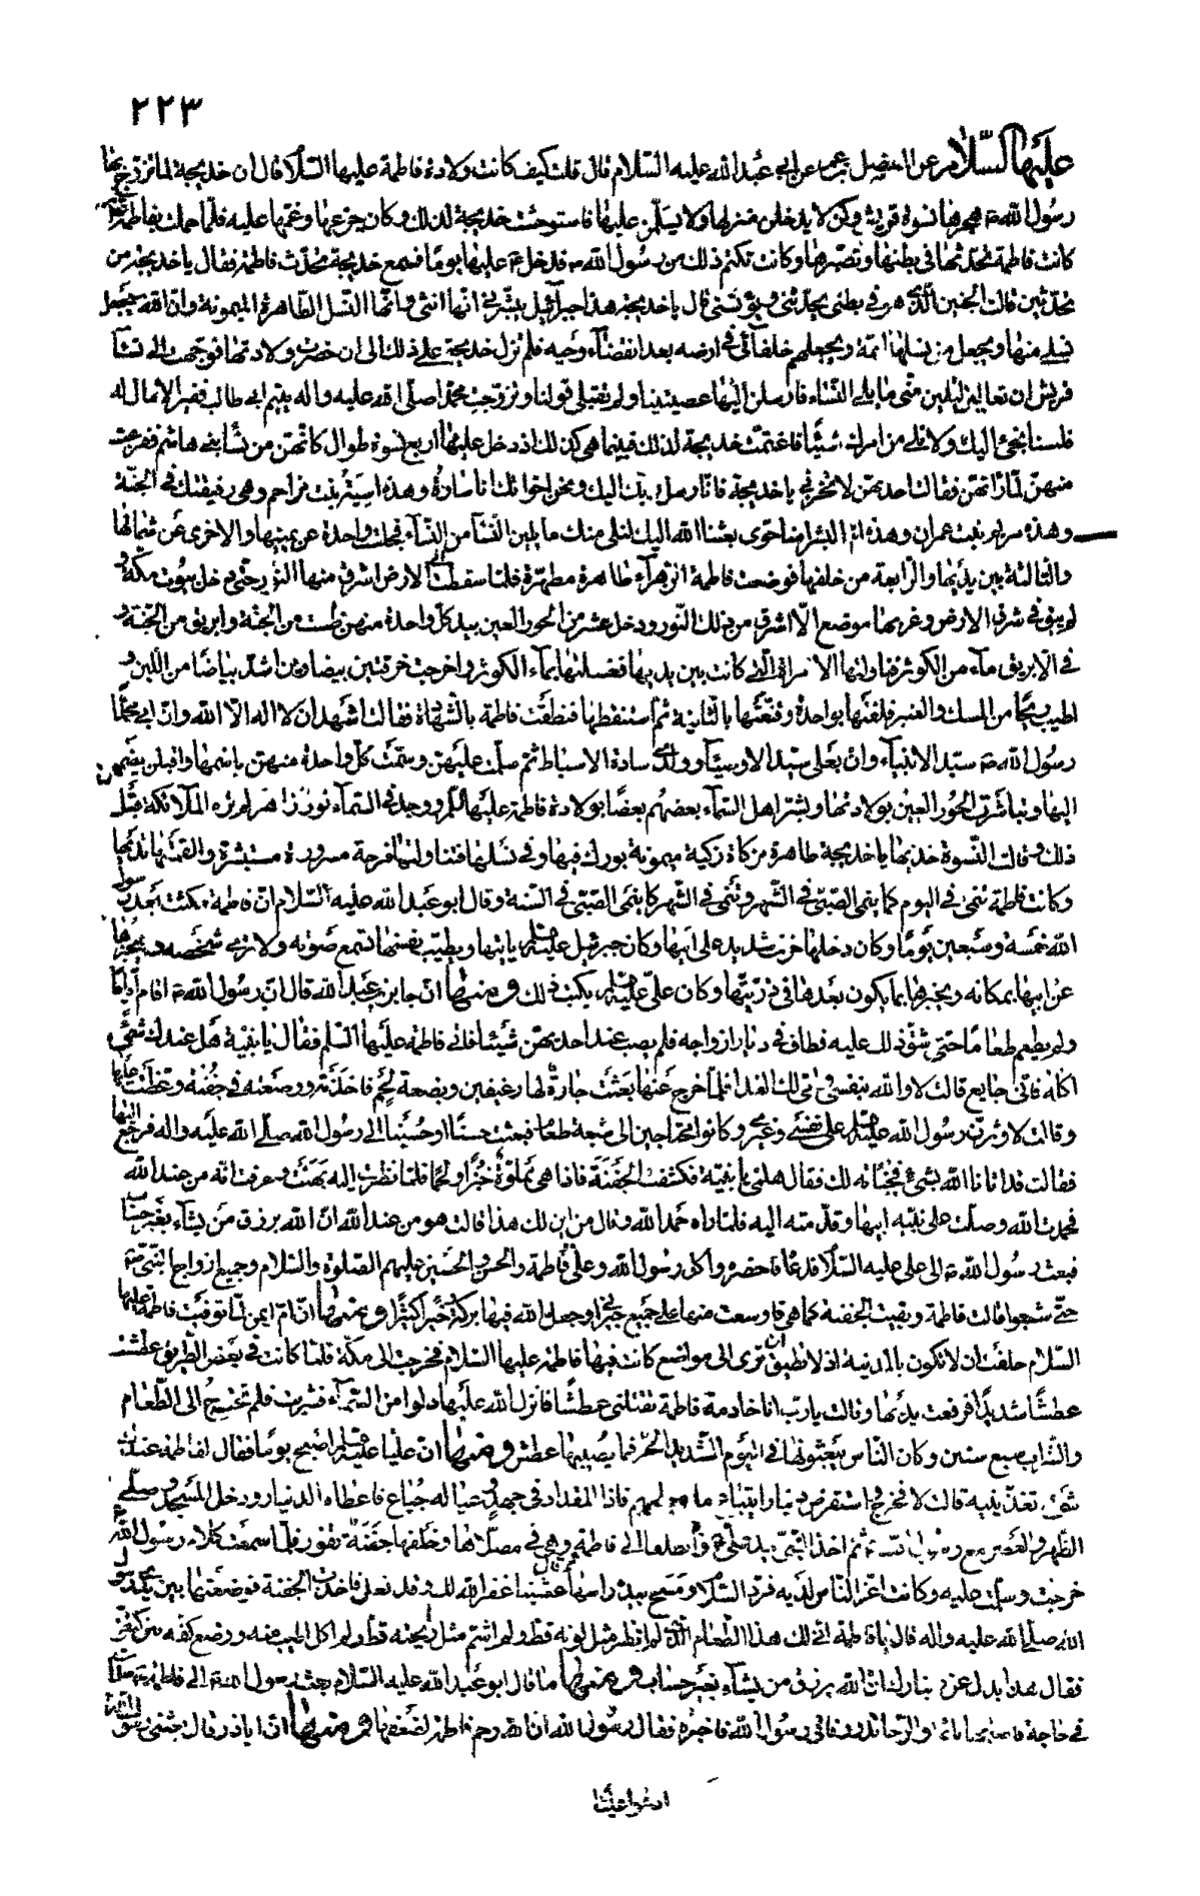 ٢٢٣
عليها السلام عن المفضل بن عمر عن ابي عبد الله عليه السلام قال قلت كيف كانت ولادة فاطمة عليها السلام قال ان خديجة لما تزوج بها
رسول الله ص هجرنها نسوة قريش وكن لا يدخلن منزلها ولا يسلمن عليها فاستوحشت خديجة لذلك وكان جزعها وغمها عليه فلما حملت بفاطمة
كانت فاطمة تحدثها في بطنها وتصبرها وكانت تكتم ذلك من رسول الله ص فدخل عليها يوما فسمع خديجة تحدث فاطمة فقال يا خديجة من
تحدثين قالت الجنين الذي هو في بطني يحدثني ويؤنسني قال يا خديجة هذا جبرئيل يبشرني انها انثى وانها النسل الطاهرة الميمونة وان الله سيجعل
نسلي منها ويجعل من نسلها ائمة ويجعلهم خلفائي في ارضه بعد انقضاء وحيه فلم تزل خديجة على ذلك الى ان حضرت ولادتها فوجهت الى نساء
قريش ان تعالين لتلين مني ما يلي النساء فارسلن اليها عصيتينا ولم تقبلي قولنا وتزوجت محمدا صلى الله عليه واله يتيم ابي طالب فقيرا لا مال له
فلسنا نجيء اليك ولا نلي من امرك شيئا فاغتمت خديجة لذلك فبينما هي كذلك اذ دخل عليها اربع نسوة طوال كانهن من نساء بني هاشم ففزعت
منهن لما راتهن فقالت احديهن لا تحزني يا خديجة فانا رسل ربك اليك ونحن اخواتك انا سارة وهذه اسية بنت مزاحم وهي رفيقتك في الجنة
وهذه مريم بنت عمران وهذه ام البشر امنا حوى بعثنا الله اليك لنلي منك ما يلين النساء من النساء فجلست واحدة عن يمينها والاخرى عن شمالها
والثالثة بين يديها والرابعة من خلفها فوضعت فاطمة الزهراء طاهرة مطهرة فلما سقطت الى الارض اشرق منها النور حتى دخل بيوت مكة و
لم يبق في شرق الارض وغربها موضع الا اشرق من ذلك النور ودخل عشر من الحور العين بيد كل واحدة منهن طست من الجنة وابريق من الجنة و
في الابريق ماء من الكوثر فتناولتها الامراة التي كانت بين يديها فغسلتها بماء الكوثر واخرجت خرقتين بيضاوين اشد بياضا من اللبن و
اطيب ريحا من المسك والعنبر فلفتها بواحدة وقنعتها بالثانية ثم استنطقتها فنطقت فاطمة بالشهادة فقالت اشهد ان لا اله الا الله وان ابي محمدا
رسول الله ص سيد الانبياء وان بعلي سيد الاوصياء وولدي سادة الاسباط ثم سلمت عليهن وسمت كل واحدة منهن باسمها واقبلن يضحكن
اليها وتباشرت الحور العين بولادتها وبشر اهل السماء بعضهم بعضا بولادة فاطمة عليها السلم ووجد في السماء نور زاهر لم تره الملائكة قبل
ذلك وقالت النسوة خذيها يا خديجة طاهرة مزكاة زكية ميمونة بورك فيها وفي نسلها فتناولتها فرحة مسرورة مستبشرة والقمتها ثديها
وكانت فاطمة تنمى في اليوم كما ينمى الصبي في الشهر وتنمى في الشهر كما ينمى الصبي في السنة وقال ابو عبد الله عليه السلام ان فاطمة مكثت بعد رسول
الله خمسة وسبعين يوما وكان دخلها حزن شديد على ابيها وكان جبرئيل عليه السلم ياتيها ويطيب نفسها تسمع صوته ولا ترى شخصه ويخبرها
عن ابيها بمكانه ويخبرها بما يكون بعدها في ذريتها وكان علي عليه السلم يكتب ذلك ومنها ان جابر بن عبد الله قال ان رسول الله ص اقام اياما
ولم يطعم طعاما حتى شق ذلك عليه فطاف في ديار ازواجه فلم يصب عند احديهن شيئا فاتى فاطمة عليها السلم فقال يا بنية هل عندك شيء
اكله فاني جايع قالت لا والله بنفسي فلما خرج عنها بعثت جارة لها رغيفين وبضعة لحم فاخذته ووضعته في جفنة وغطت عليها
وقالت لاوثرن رسول الله عليه السلم على نفسي وغيري وكانوا محتاجين الى شبعة طعام فبعثت حسنا او حسينا الى رسول الله صلى الله عليه واله فرجع اليها
فقالت قد اتانا الله بشيء فخباته لك فقال هلمي يا بنية فكشفت الجفنة فاذا هي مملوة خبزا ولحما فلما نظرت اليه بهتت وعرفت انه من عند الله
فحمدت الله وصلت على نبيه ابيها وقدمته اليه فلما راه حمد الله وقال من اين لك هذا قالت هو من عند الله ان الله يرزق من يشاء بغير حساب
فبعث رسول الله ص الى علي عليه السلام فدعاه فاحضره واكل رسول الله وعلي وفاطمة والحسن والحسين عليهم الصلوة والسلام وجميع ازواج النبي ص
حتى شبعوا قالت فاطمة وبقيت الجفنة كما هي فاوسعت منها على جميع جيراني وجعل الله فيها بركة وخيرا كثيرا ومنها ان ام ايمن لما توفيت فاطمة عليها
السلام حلفت ان لا تكون بالمدينة اذ لا تطيق ان ترى الى مواضع كانت فيها فاطمة عليها السلام فخرجت الى مكة فلما كانت في بعض الطريق عطشت
عطشا شديدا فرفعت يديها وقالت يا رب انا خادمة فاطمة تقتلني عطشا فانزل الله عليها دلوا من السماء فشربت فلم تحتج الى الطعام
والشراب سبع سنين وكان الناس يبعثونها في اليوم الشديد الحر فما يصيبها عطش ومنها ان عليا عليه السلم اصبح يوما فقال لفاطمة عندك
شيء تغذينيه قالت لا فخرج واستقرض دينارا ليبتاع ما يصلحهم فاذا المقداد في جهد وعياله جياع فاعطاه الدينار ودخل المسجد وصلى
الظهر والعصر مع رسول الله ص ثم اخذ النبي بيد علي وانطلقا الى فاطمة وهي في مصلاها وخلفها جفنة تفور فلما سمعت كلام رسول الله
خرجت وسلمت عليه وكانت اعز الناس لديه فرد السلام ومسح بيده راسها قال عشينا غفر الله لك وقد فعل فاخذت الجفنة فوضعتها بين يدي رسول
الله صلى الله عليه واله قال يا فاطمة انى لك هذا الطعام الذي لم انظر مثل لونه قط ولم اشم مثل رائحته قط ولم اكل اطيب منه ووضع كفه بين كتفي
فقال هذا بدل عن دينارك ان الله يرزق من يشاء بغير حساب ومنها ما قال ابو عبد الله عليه السلام بعث رسول الله ص الى فاطمة
في حاجة فاتى رسول الله فاخبره فقال رسول الله ان الله رحم فاطمة لضعفها ومنها ان ابا ذر قال بعثني رسول الله
ادعوا عليا